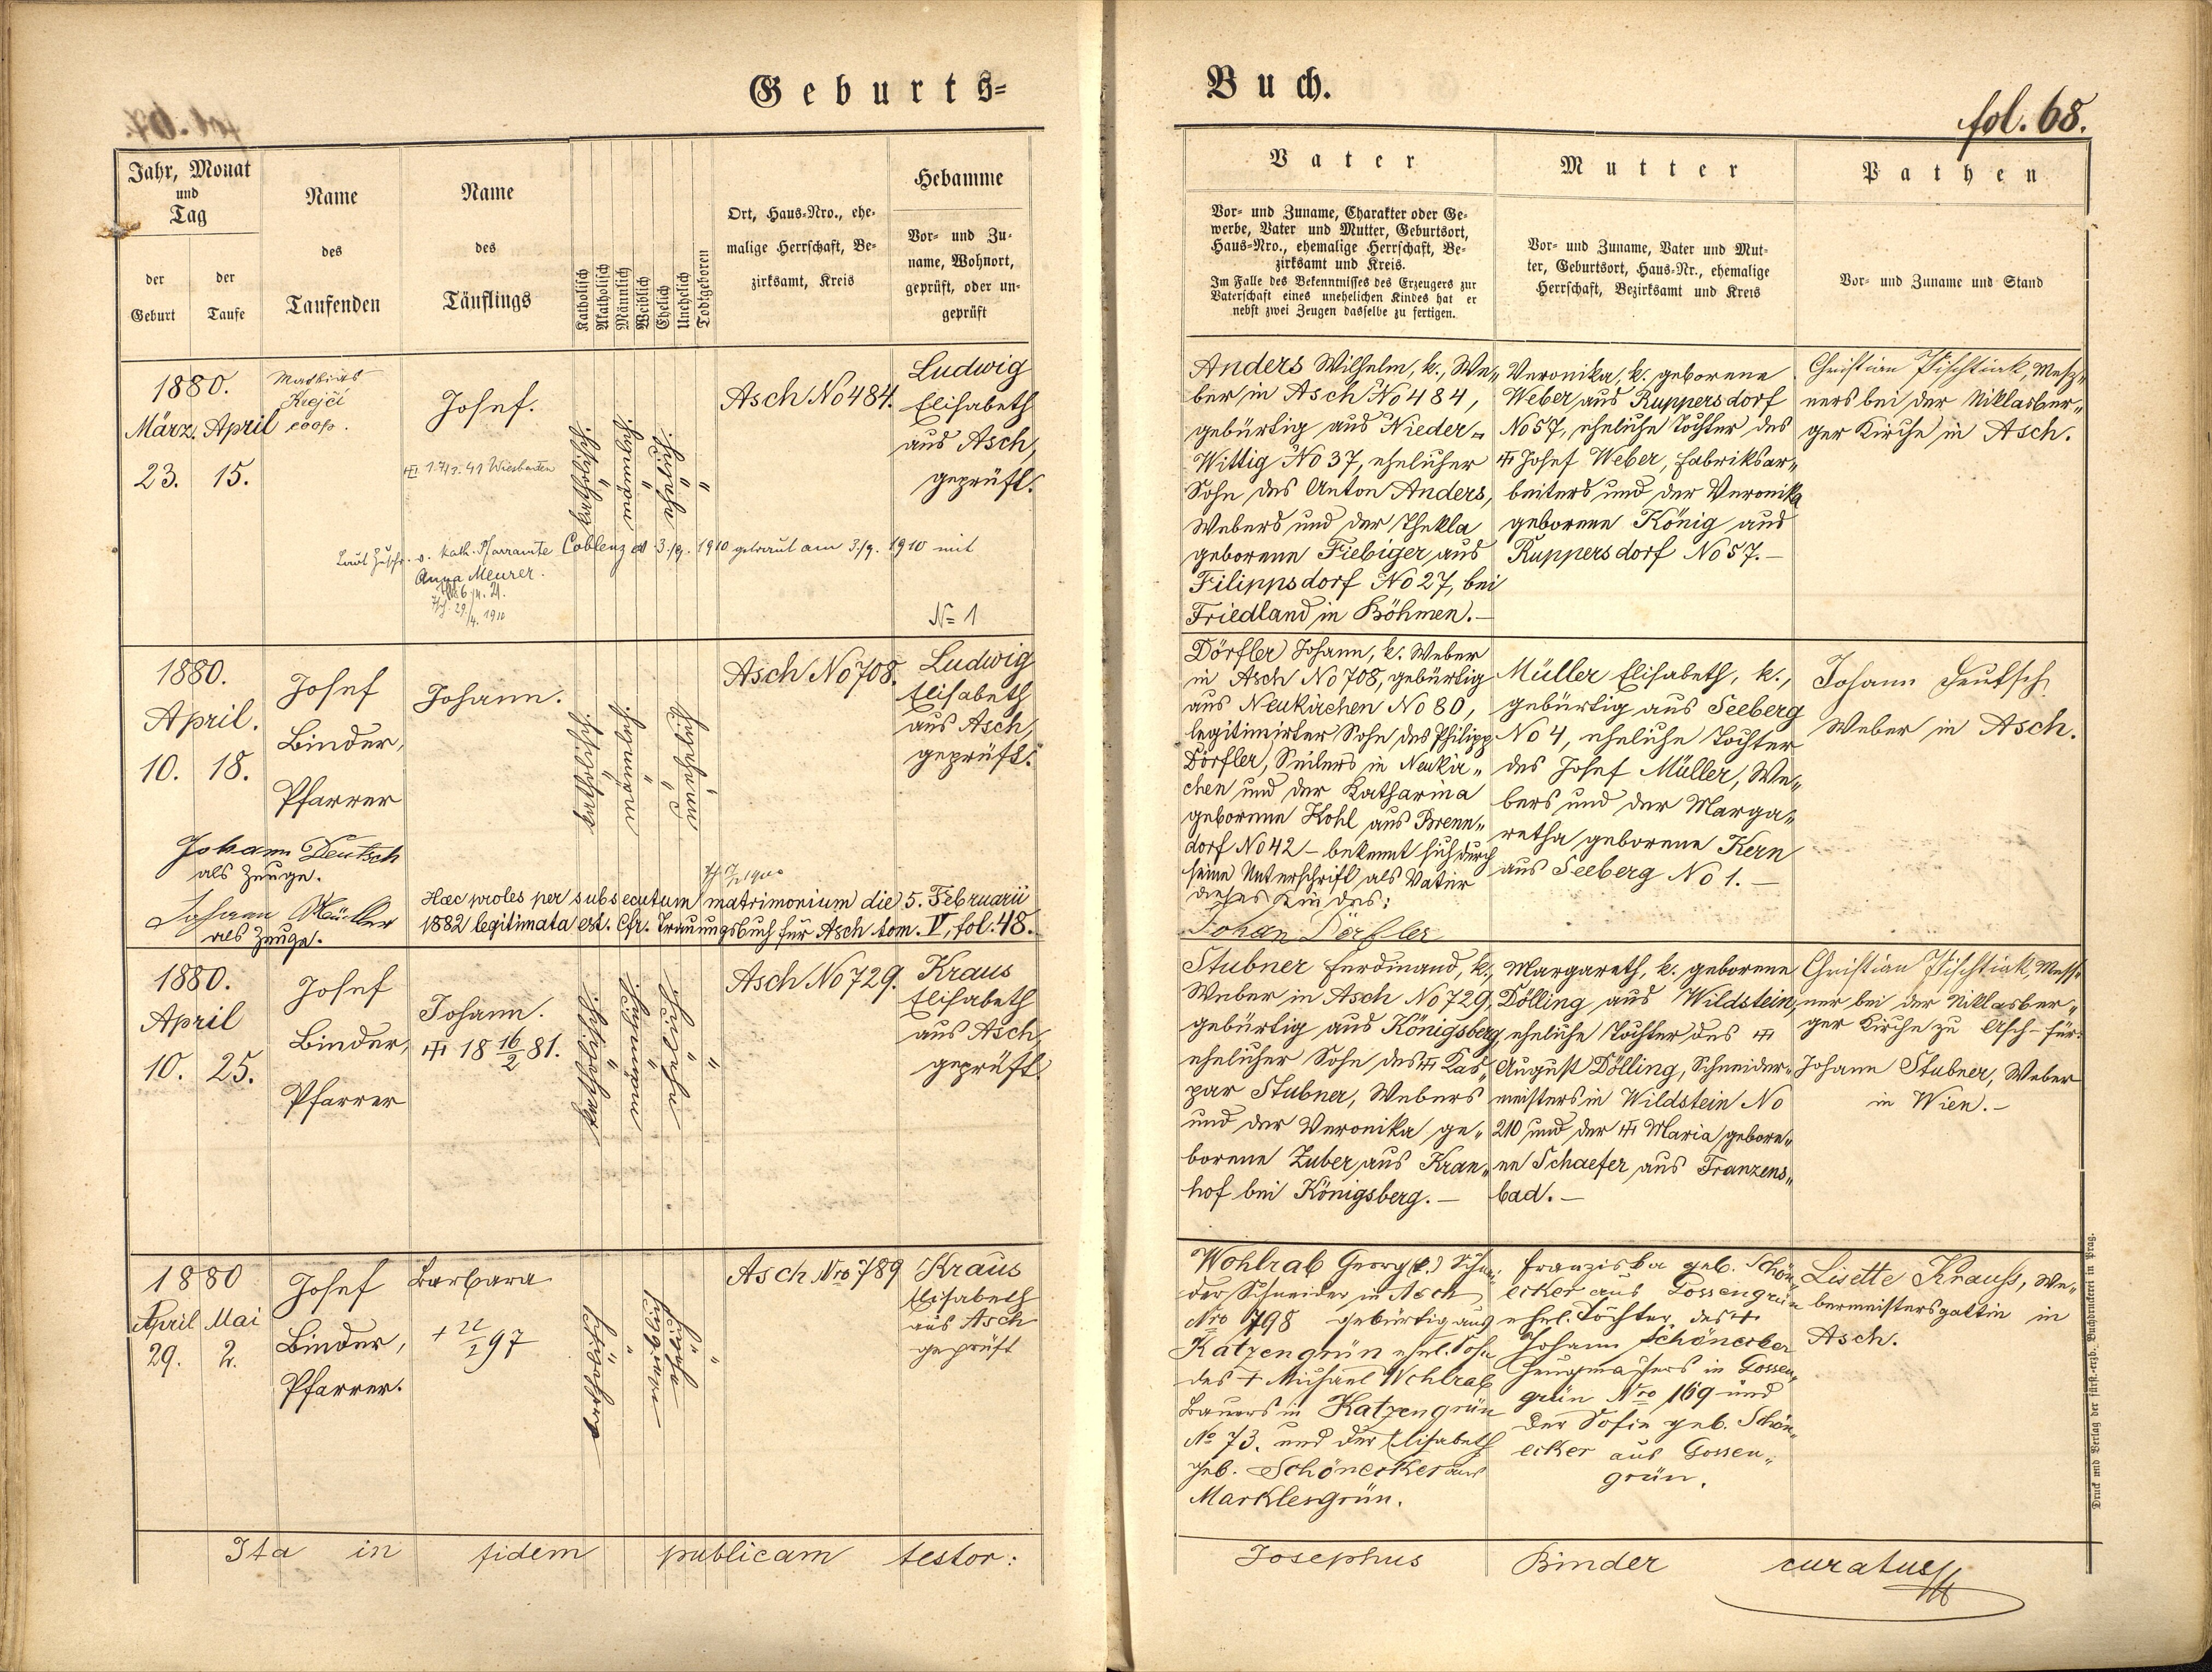 Geburts-
Jahr, Monat
und
Tag
der
Geburt
der
Taufe
Name
des
Taufenden
Name
des
Täuflings
Katholisch
Akatholisch
Männlich
Weiblich
Ehelich
Unehelich
Todtgeboren
Ort, Haus-Nro., ehe-
malige Herrschaft, Be-
zirksamt, Kreis
Hebamme
Vor- und Zu-
name, Wohnort,
geprüft, oder un-
geprüft
1880.
März. April
23. 15.
Krejčí
coop.
Josef.
1941 Wiesbaden
katholisch
"
männlich
"
ehelich
"
"
Asch No 484.
Ludwig
Elisabeth
aus Asch,
geprüft.
Laut Zuschr. v. kath. Pfarramte Coblenz dt 3./9. 1910 getraut am 3./9. 1910 mit
Anna Meurer.
29./4. 1910
No 1
1880.
April.
10. 18.
Josef
Binder,
Pfarrer
Johann.
katholisch
"
männlich
"
"
unehelich
Asch No 708.
Ludwig
Elisabeth
aus Asch,
geprüft.
Johann Deutsch
als Zeuge.
Johann Müller
als Zeuge.
Hæc proles per subsecutum matrimonium die 5. Februarii
1882 legitimata est. Cfr. Trauungsbuch für Asch tom. IV, fol. 48.
1880.
April
10. 25.
Josef
Binder,
Pfarrer
Johann.
18 16/2 81.
katholisch
"
männlich
"
ehelich
"
"
Asch No 729.
Kraus
Elisabeth
aus Asch,
geprüft.
1880
April Mai
29. 2.
Josef
Binder,
Pfarrer.
Barbara
+ 22/1 97
katholisch
"
"
ehelich
"
Asch Nro 789
Kraus
Elisabeth
aus Asch
geprüft
Ita in fidem publicam testor:
Buch.
fol. 68.
Vater
Vor- und Zuname, Charakter oder Ge-
werbe, Vater und Mutter, Geburtsort,
Haus-Nro., ehemalige Herrschaft, Be-
zirksamt und Kreis.
Im Falle des Bekenntnisses des Erzeugers zur
Vaterschaft eines unehelichen Kindes hat er
nebst zwei Zeugen dasselbe zu fertigen.
Mutter
Vor- und Zuname, Vater und Mut-
ter, Geburtsort, Haus-Nr., ehemalige
Herrschaft, Bezirksamt und Kreis
Pathen
Vor- und Zuname und Stand
Anders Wilhelm, k., We-
ber in Asch No 484,
gebürtig aus Nieder-
Wittig No 37, ehelicher
Sohn des Anton Anders,
Webers und der Thekla
geborene Fiebiger aus
Filippsdorf No 27, bei
Friedland in Böhmen.-
Veronika, k. geborene
Weber aus Ruppersdorf
No 57, eheliche Tochter des
Josef Weber, Fabriksar-
beiters und der Veronika
geborene König aus
Ruppersdorf No 57.-
Christian Pischtiak, Mesz-
ners bei der Niklasber-
ger Kirche in Asch.
Dörfler Johann, k. Weber
in Asch No 708, gebürtig
aus Neukirchen No 80,
legitimirter Sohn des Philipp
Dörfler, Seilers in Neukir-
chen und der Katharina
geborene Kohl aus Brenn-
dorf No 42 - bekennt sich durch
seine Unterschrift als Vater
dieses Kindes:
Johan Dörfler
Müller Elisabeth, k.,
gebürtig aus Seeberg
No 4, eheliche Tochter
des Josef Müller, We-
bers und der Marga-
retha geborene Kern
aus Seeberg No 1.-
Johann Deutsch
Weber in Asch.
Stubner Ferdinand, k.,
Weber in Asch No 729,
gebürtig aus Königsberg
ehelicher Sohn des Kas-
par Stubner, Webers
und der Veronika ge-
borene Zuber aus Kran-
hof bei Königsberg.-
Margareth, k. geborene
Dölling aus Wildstein,
eheliche Tochter des
August Dölling, Schneider-
meisters in Wildstein No
210 und der Maria gebore-
ne Schaefer aus Franzens-
bad.-
Christian Pischtiak, Mess-
ner bei der Niklasber-
ger Kirche zu Asch - für:
Johann Stubner, Weber
in Wien.-
Wohlrab Georg (k.)
der Schneider in Asch
Nro 798 gebürtig aus
Katzengrün ehel. Sohn
des + Michael Wohlrab
Bauers in Katzengrün
No 73. und der Elisabeth
geb. Schönecker aus
Marklesgrün.
Franziska geb. Schön-
ecker aus Gossengrün
ehel. Tochter des +
Johann Schönecker
Zeugmachers in Gossen-
grün Nro 169 und
der Sofie geb. Schön-
ecker aus Gossen-
grün.
Lisette Krauss, We-
bermeistersgattin in
Asch.
Josephus Binder curatus
Druck und Verlag der fürst-erzb. Buchdruckerei in Prag.